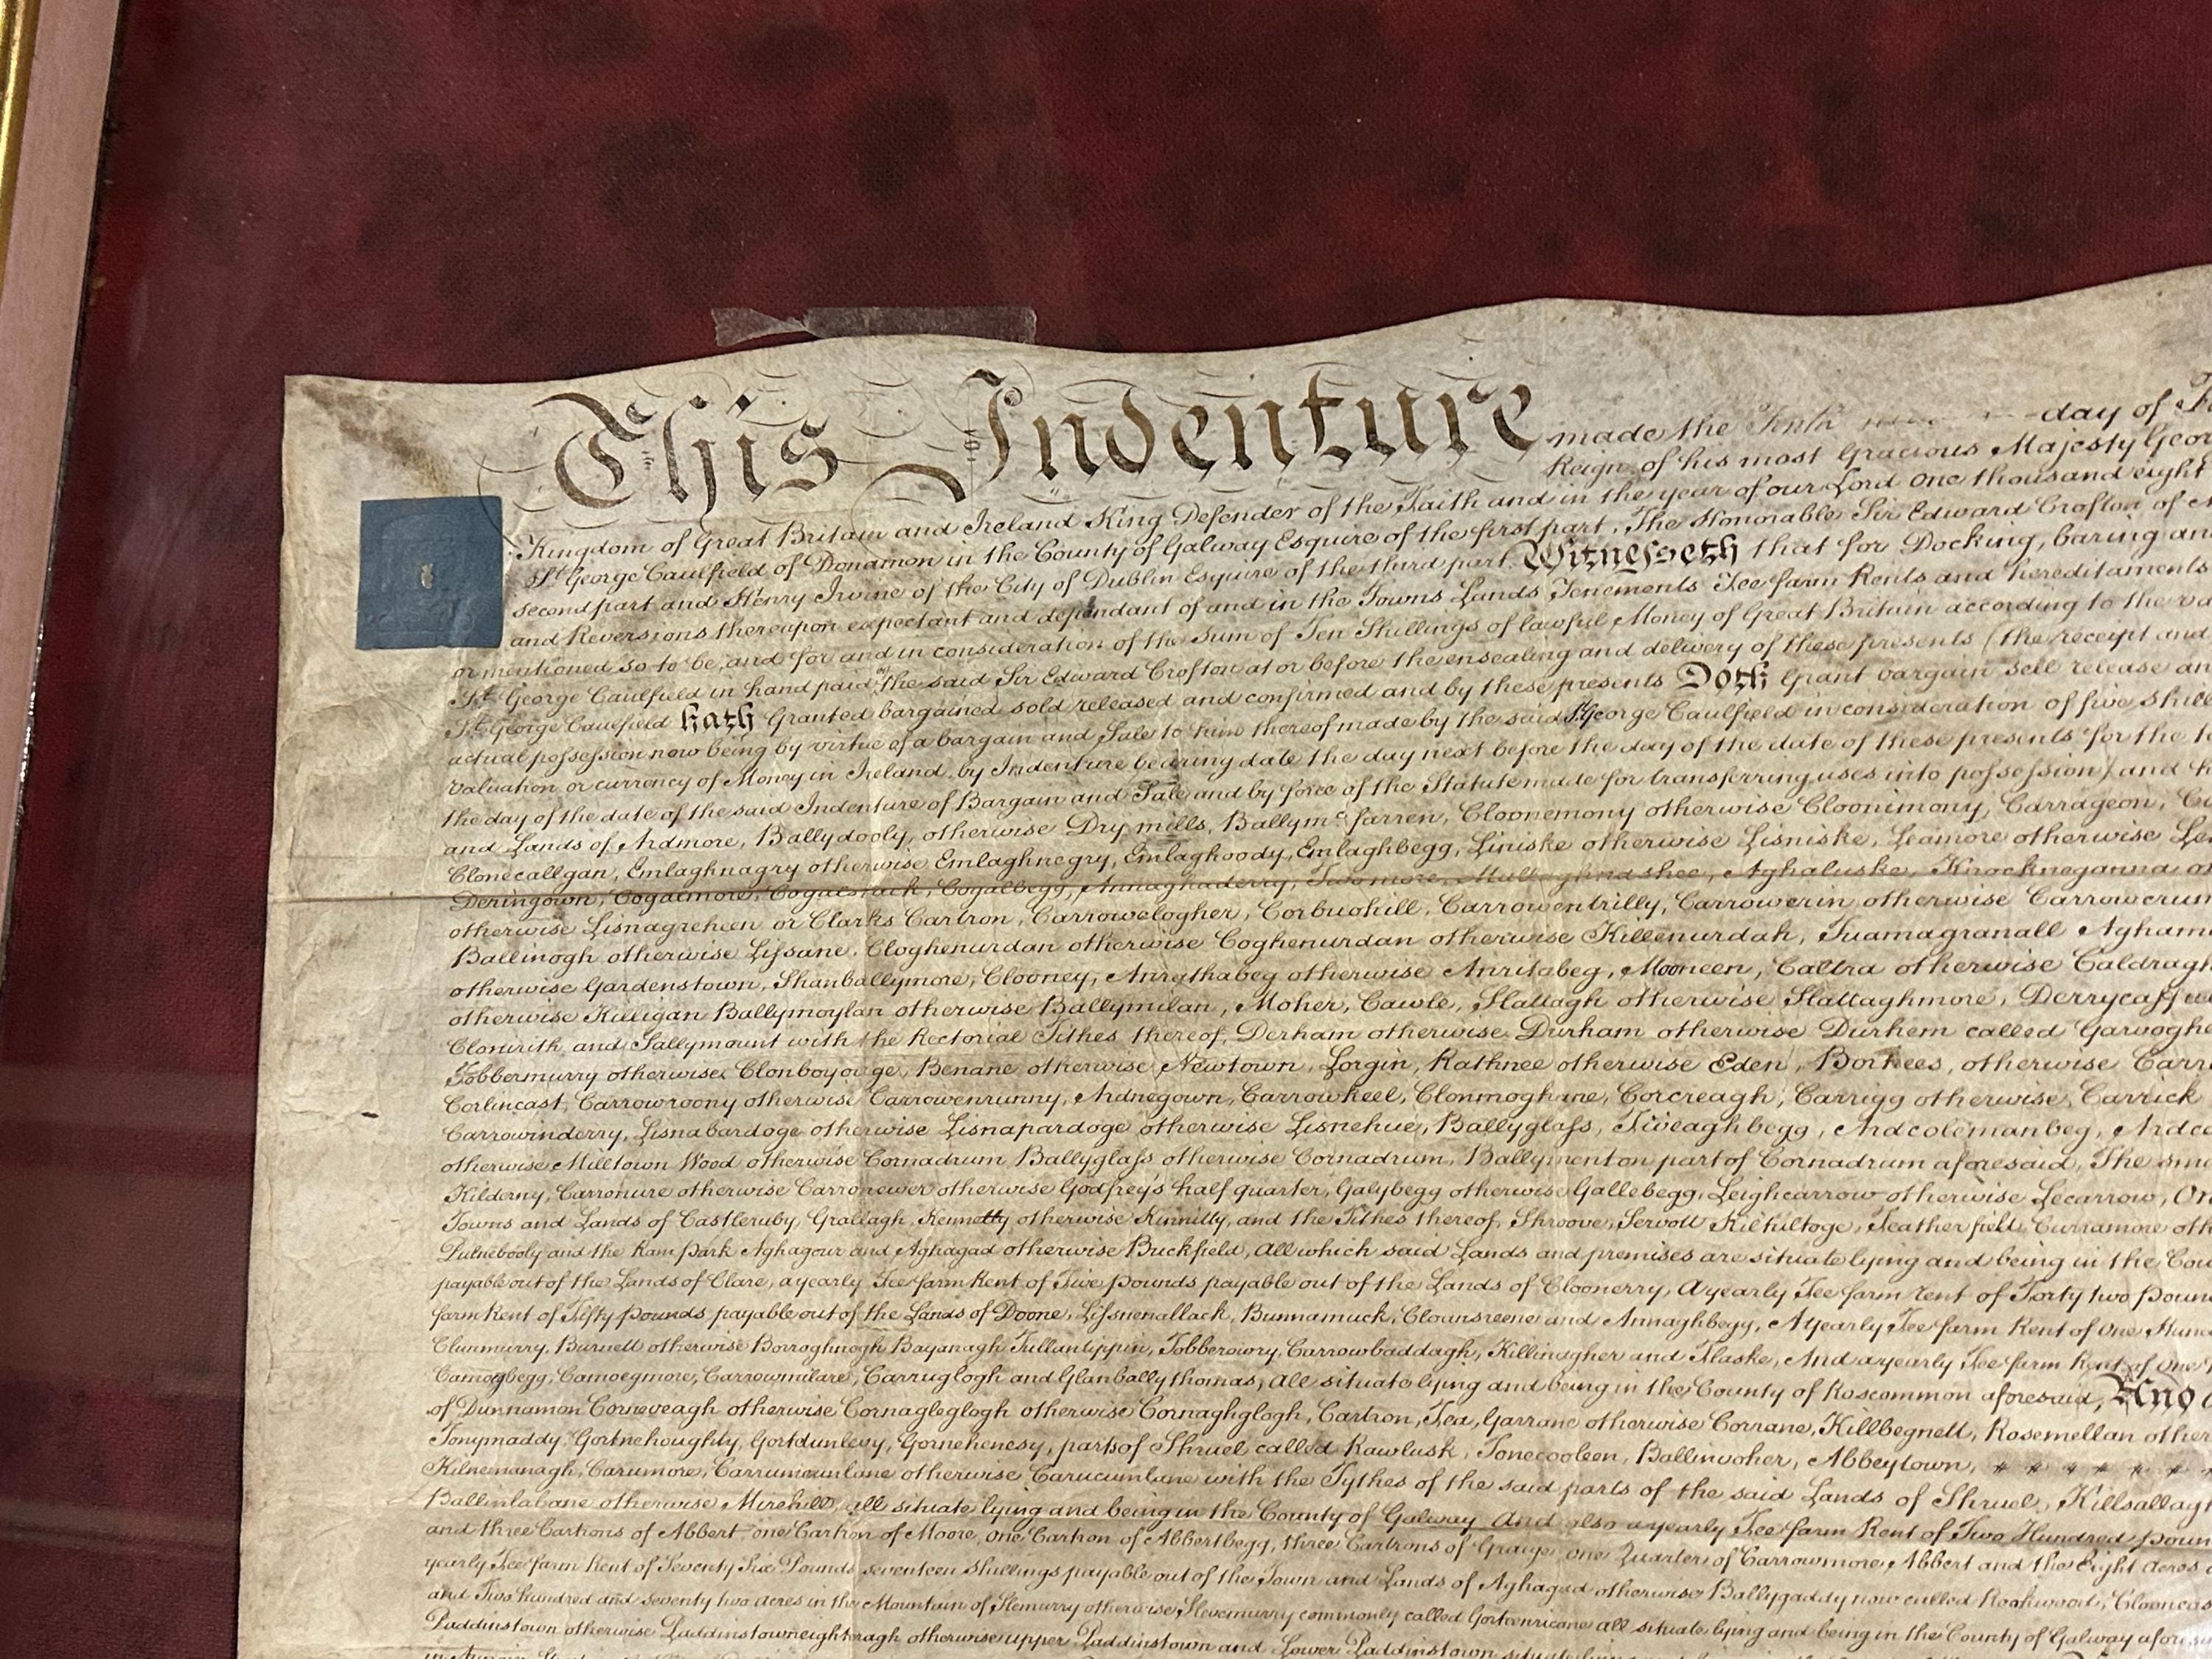 This Indenture made the Tenth day of
Reign of his most Gracious Majesty Geor
Kingdom of Great Britain and Ireland King Defender of the Faith and in the year of our Lord One thousand eight
St. George Caulfield of Donamon in the County of Galway Esquire of the first part, The Honorable Sir Edward Crofton of
second part and Henry Irvine of the City of Dublin Esquire of the third part, Witnesseth that for Docking, baring and
and Reversions thereupon expectant and dependant of and in the Towns Lands Tenements Fee farm Rents and hereditaments
or mentioned so to be, and for and in consideration of the Sum of Ten Shillings of lawful Money of Great Britain according to the va
St. George Caulfield in hand paid by the said Sir Edward Crofton at or before the ensealing and delivery of these presents (the receipt and
St. George Caulfield hath Granted bargained sold released and confirmed and by these presents Doth Grant bargain sell release an
actual possession now being by virtue of a bargain and Sale to him thereof made by the said St. George Caulfield in consideration of five shill
valuation or currency of Money in Ireland by Indenture bearing date the day next before the day of the date of these presents for the te
the day of the date of the said Indenture of Bargain and Sale and by force of the Statute made for transferring uses into possession) and
and Lands of Ardmore, Ballydooly, otherwise Dry mills, Ballymc. farren, Cloonemony otherwise Cloonimony, Carrageon,
Clonecallgan, Emlaghnagry otherwise Emlaghnegry, Emlaghoody, Emlaghbegg, Liniske otherwise Lisniske, Leamore otherwise
Deringown, Cogalmore, Cogalbegg, Annaghaderry, Aghaluske, Knockneganna
otherwise Lisnagreheen or Clarks Cartron, Carrowclogher, Corbuohill, Carrowentrilly, Carrowerin otherwise Carrowcrum
Ballinogh otherwise Lissane, Cloghenurdan otherwise Coghenurdan otherwise Killenurdah, Tuamagranall Agham
otherwise Gardenstown, Shanballymore, Clooney, Anrathabeg otherwise Anritabeg, Mooneen, Caltra otherwise Caldragh
otherwise Killigan Ballymoylan otherwise Ballymilan, Moher, Cawle, Slattagh otherwise Slattaghmore,
and Sallymount with the Rectorial Tithes thereof, Derham otherwise Durham otherwise Durhem called
Tobbermurry otherwise Benane otherwise Newtown, Lorgin, Rathnee otherwise Eden, otherwise
Corlincast, Carrowroony otherwise Carrowenrunny, Ardnegown, Carrowkeel, Clonmoghane, Corcreagh, Carrigg otherwise Carrick
Carrowinderry, Lisnabardoge otherwise Lisnapardoge otherwise Lisnehue, Ballyglass, Tiveaghbegg, Ardcolemanbeg,
otherwise Milltown Wood otherwise Cornadrum Ballyglass otherwise Cornadrum, part of Cornadrum aforesaid, The
Kilderny, Carronure otherwise Carronewer otherwise Godfrey's half quarter, Galybegg otherwise Gallebegg, Leighcarrow otherwise Lecarrow,
Towns and Lands of Castleruby, Grallagh, Kennetty otherwise Kinnitty, and the Tithes thereof, Shroove, Featherfield Curramore
and the Ram Park Aghagour and Aghagad otherwise Buckfield, all which said Lands and premises are situate lying and being in the Cou
payable out of the Lands of Clare, a yearly Fee farm Rent of Five pounds payable out of the Lands of Cloonerry, A yearly Fee farm rent of Forty two pound
farm Rent of Fifty pounds payable out of the Lands of Doone, Lissnenallack, Bunnamuck, and Annaghbegg, A yearly Fee farm Rent of one Hun
Clunmurry, Burnell otherwise Borroghnogh Tobberowry, Carrowbaddagh, Killinagher and Flaske, And a yearly Fee farm Rent of one
Camogbegg, Camoegmore, Carrowmilare, Carruglogh and Glanballythomas, all situate lying and being in the County of Roscommon aforesaid, And
of Dunnamon Corneveagh otherwise Cornagleglogh otherwise Cornaghglogh, Cartron, Tea, Garrane otherwise Corrane, Killbegnett, Rosemellan other
Tonymaddy, Gortnehoughty, Gortdunlevy, Gornehenesy, parts of Shruel called Rawlusk, Tonecooleen, Ballinvoher, Abbeytown,
Kilnemanagh, Carumore, otherwise Carucunlane with the Tythes of the said parts of the said Lands of Shruel, Killsallagh
Ballinlabane otherwise Mirehill, all situate lying and being in the County of Galway And also a yearly Fee farm Rent of Two Hundred pound
and three Cartrons of Abbert, one Cartron of Moore, one Cartron of Abbertbegg, three Cartrons of Graige, one Quarter of Carrowmore, Abbert and the Eight acres
yearly Fee farm Rent of Seventy Six Pounds seventeen shillings payable out of the Town and Lands of Aghagad otherwise Ballygaddy now called Rookwood,
and Two hundred and seventy two acres in the Mountain of Slemurry otherwise Slevemurry commonly called Gorteenricane all situate lying and being in the County of Galway afore
Paddinstown otherwise otherwise upper Paddinstown and Lower Paddinstown